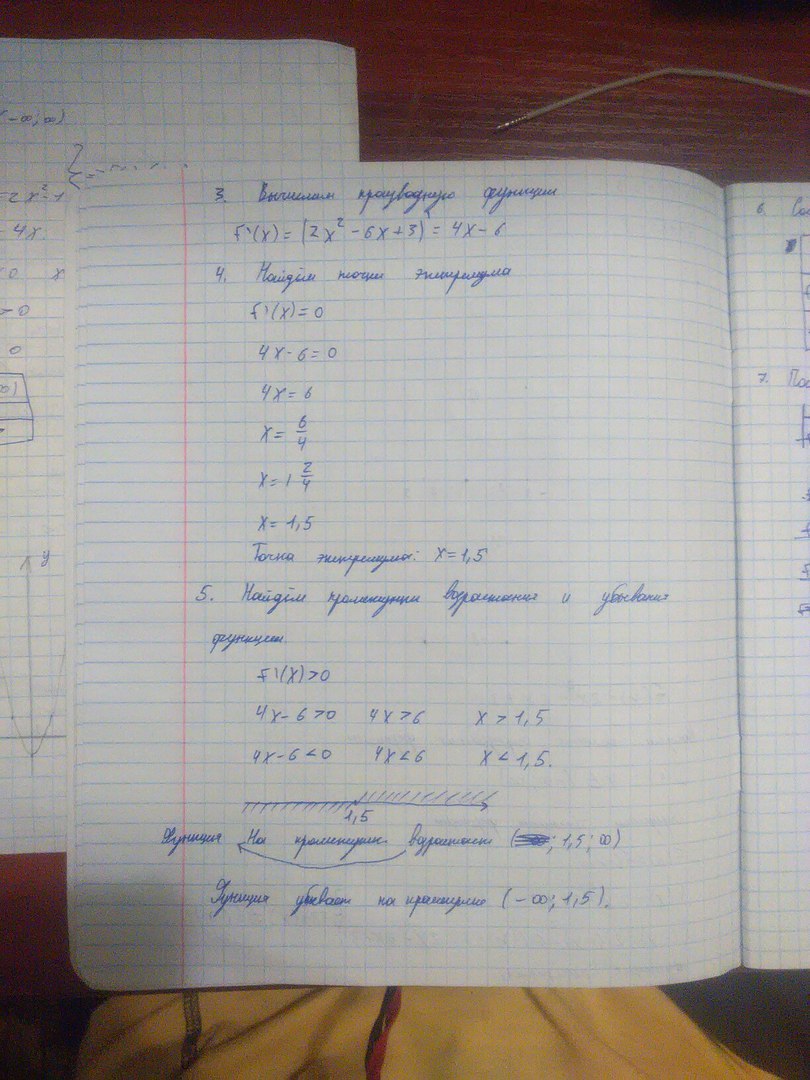 -∞; ∞)
= 2x² - 1
4x
x
0
y
3. Вычислим производную функции
f'(x) = (2x² - 6x + 3)' = 4x - 6
4. Найдём точки экстремума
f'(x) = 0
4x - 6 = 0
4x = 6
x = 6/4
x = 1 2/4
x = 1,5
Точка экстремума: x = 1,5
5. Найдём промежутки возрастания и убывания
функции
f'(x) > 0
4x - 6 > 0 4x > 6 x > 1,5
4x - 6 < 0 4x < 6 x < 1,5.
1,5
Функция На промежутке возрастает (; 1,5; ∞)
Функция убывает на промежутке (-∞; 1,5).
6.
7.